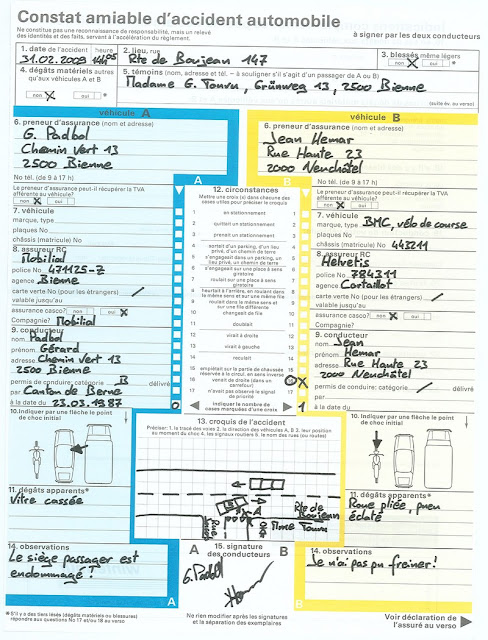 Constat amiable d'accident automobile
Ne constitue pas une reconnaissance de responsabilité, mais un relevé
des identités et des faits, servant à l'accélération du règlement.
à signer par les deux conducteurs
1. date de l'accident heure
31.02.2009
2. lieu, rue
Rte de Boujean 147
3. blessés même légers
non oui
4. dégâts matériels autres
qu'aux véhicules A et B
non oui
5. témoins (nom, adresse et tél. – à souligner s'il s'agit d'un passager de A ou B)
Madame G. Tonru, Grünweg 13, 2500 Bienne
(suite év. au verso)
véhicule A
6. preneur d'assurance (nom et adresse)
G. Padbol
Chemin Vert 13
2500 Bienne
No tél. (de 9 à 17 h)
Le preneur d'assurance peut-il récupérer la TVA
afférente au véhicule?
non oui
7. véhicule
marque, type
plaques No
châssis (matricule) No
8. assureur RC
Mobilial
police No 471125-Z
agence Bienne
carte verte No (pour les étrangers)
valable jusqu'au
assurance casco? non oui
Compagnie? Mobilial
9. conducteur
nom Padbol
prénom Gérard
adresse Chemin Vert 13
2500 Bienne
permis de conduire: catégorie B délivré
par Canton de Berne
à la date du 23.03.1987
10. Indiquer par une flèche le point
de choc initial
11. dégâts apparents*
Vitre cassée
14. observations
Le siège passager est
endommagé!
A
12. circonstances
Mettre une croix (x) dans chacune des
cases utiles pour préciser le croquis
1 en stationnement 1
2 quittait un stationnement 2
3 prenait un stationnement 3
4 sortait d'un parking, d'un lieu
privé, d'un chemin de terre 4
5 s'engageait dans un parking, un
lieu privé, un chemin de terre 5
6 s'engageait sur une place à sens
giratoire 6
7 roulait sur une place à sens
giratoire 7
8 heurtait à l'arrière, en roulant dans
le même sens et sur une même file 8
9 roulait dans le même sens et
sur une file différente 9
10 changeait de file 10
11 doublait 11
12 virait à droite 12
13 virait à gauche 13
14 reculait 14
15 empiétait sur la partie de chaussée
réservée à la circul. en sens inverse 15
16 venait de droite (dans un
carrefour) 16
17 n'avait pas observé le signal
de priorité 17
0 indiquer le nombre de
cases marquées d'une croix 1
13. croquis de l'accident
Préciser: 1. la tracé des voies 2. la direction des véhicules A, B 3. leur position
au moment du choc 4. les signaux routiers 5. le nom des rues (ou routes)
B
A
Rte de
Boujean
Mme Tonru
A
15. signature
des conducteurs
B
G. Padbol
Ne rien modifier après les signatures
et la séparation des exemplaires
véhicule B
6. preneur d'assurance (nom et adresse)
Jean Hemar
Rue Haute 23
2000 Neuchâtel
No tél. (de 9 à 17 h)
Le preneur d'assurance peut-il récupérer la TVA
afférente au véhicule?
non oui
7. véhicule
marque, type BMC, vélo de course
plaques No
châssis (matricule) No 443211
8. assureur RC
Helvetis
police No 784311
agence Cortaillot
carte verte No (pour les étrangers)
valable jusqu'au
assurance casco? non oui
Compagnie?
9. conducteur
nom Jean
prénom Hemar
adresse Rue Haute 23
2000 Neuchâtel
permis de conduire: catégorie délivré
par
à la date du
10. Indiquer par une flèche le point
de choc initial
11. dégâts apparents*
Roue pliée, pneu
éclaté
14. observations
Je n'ai pas pu freiner!
B
*S'il y a des tiers lésés (dégâts matériels ou blessures)
répondre aux questions No 17 et/ou 18 au verso
Voir déclaration de
l'assuré au verso